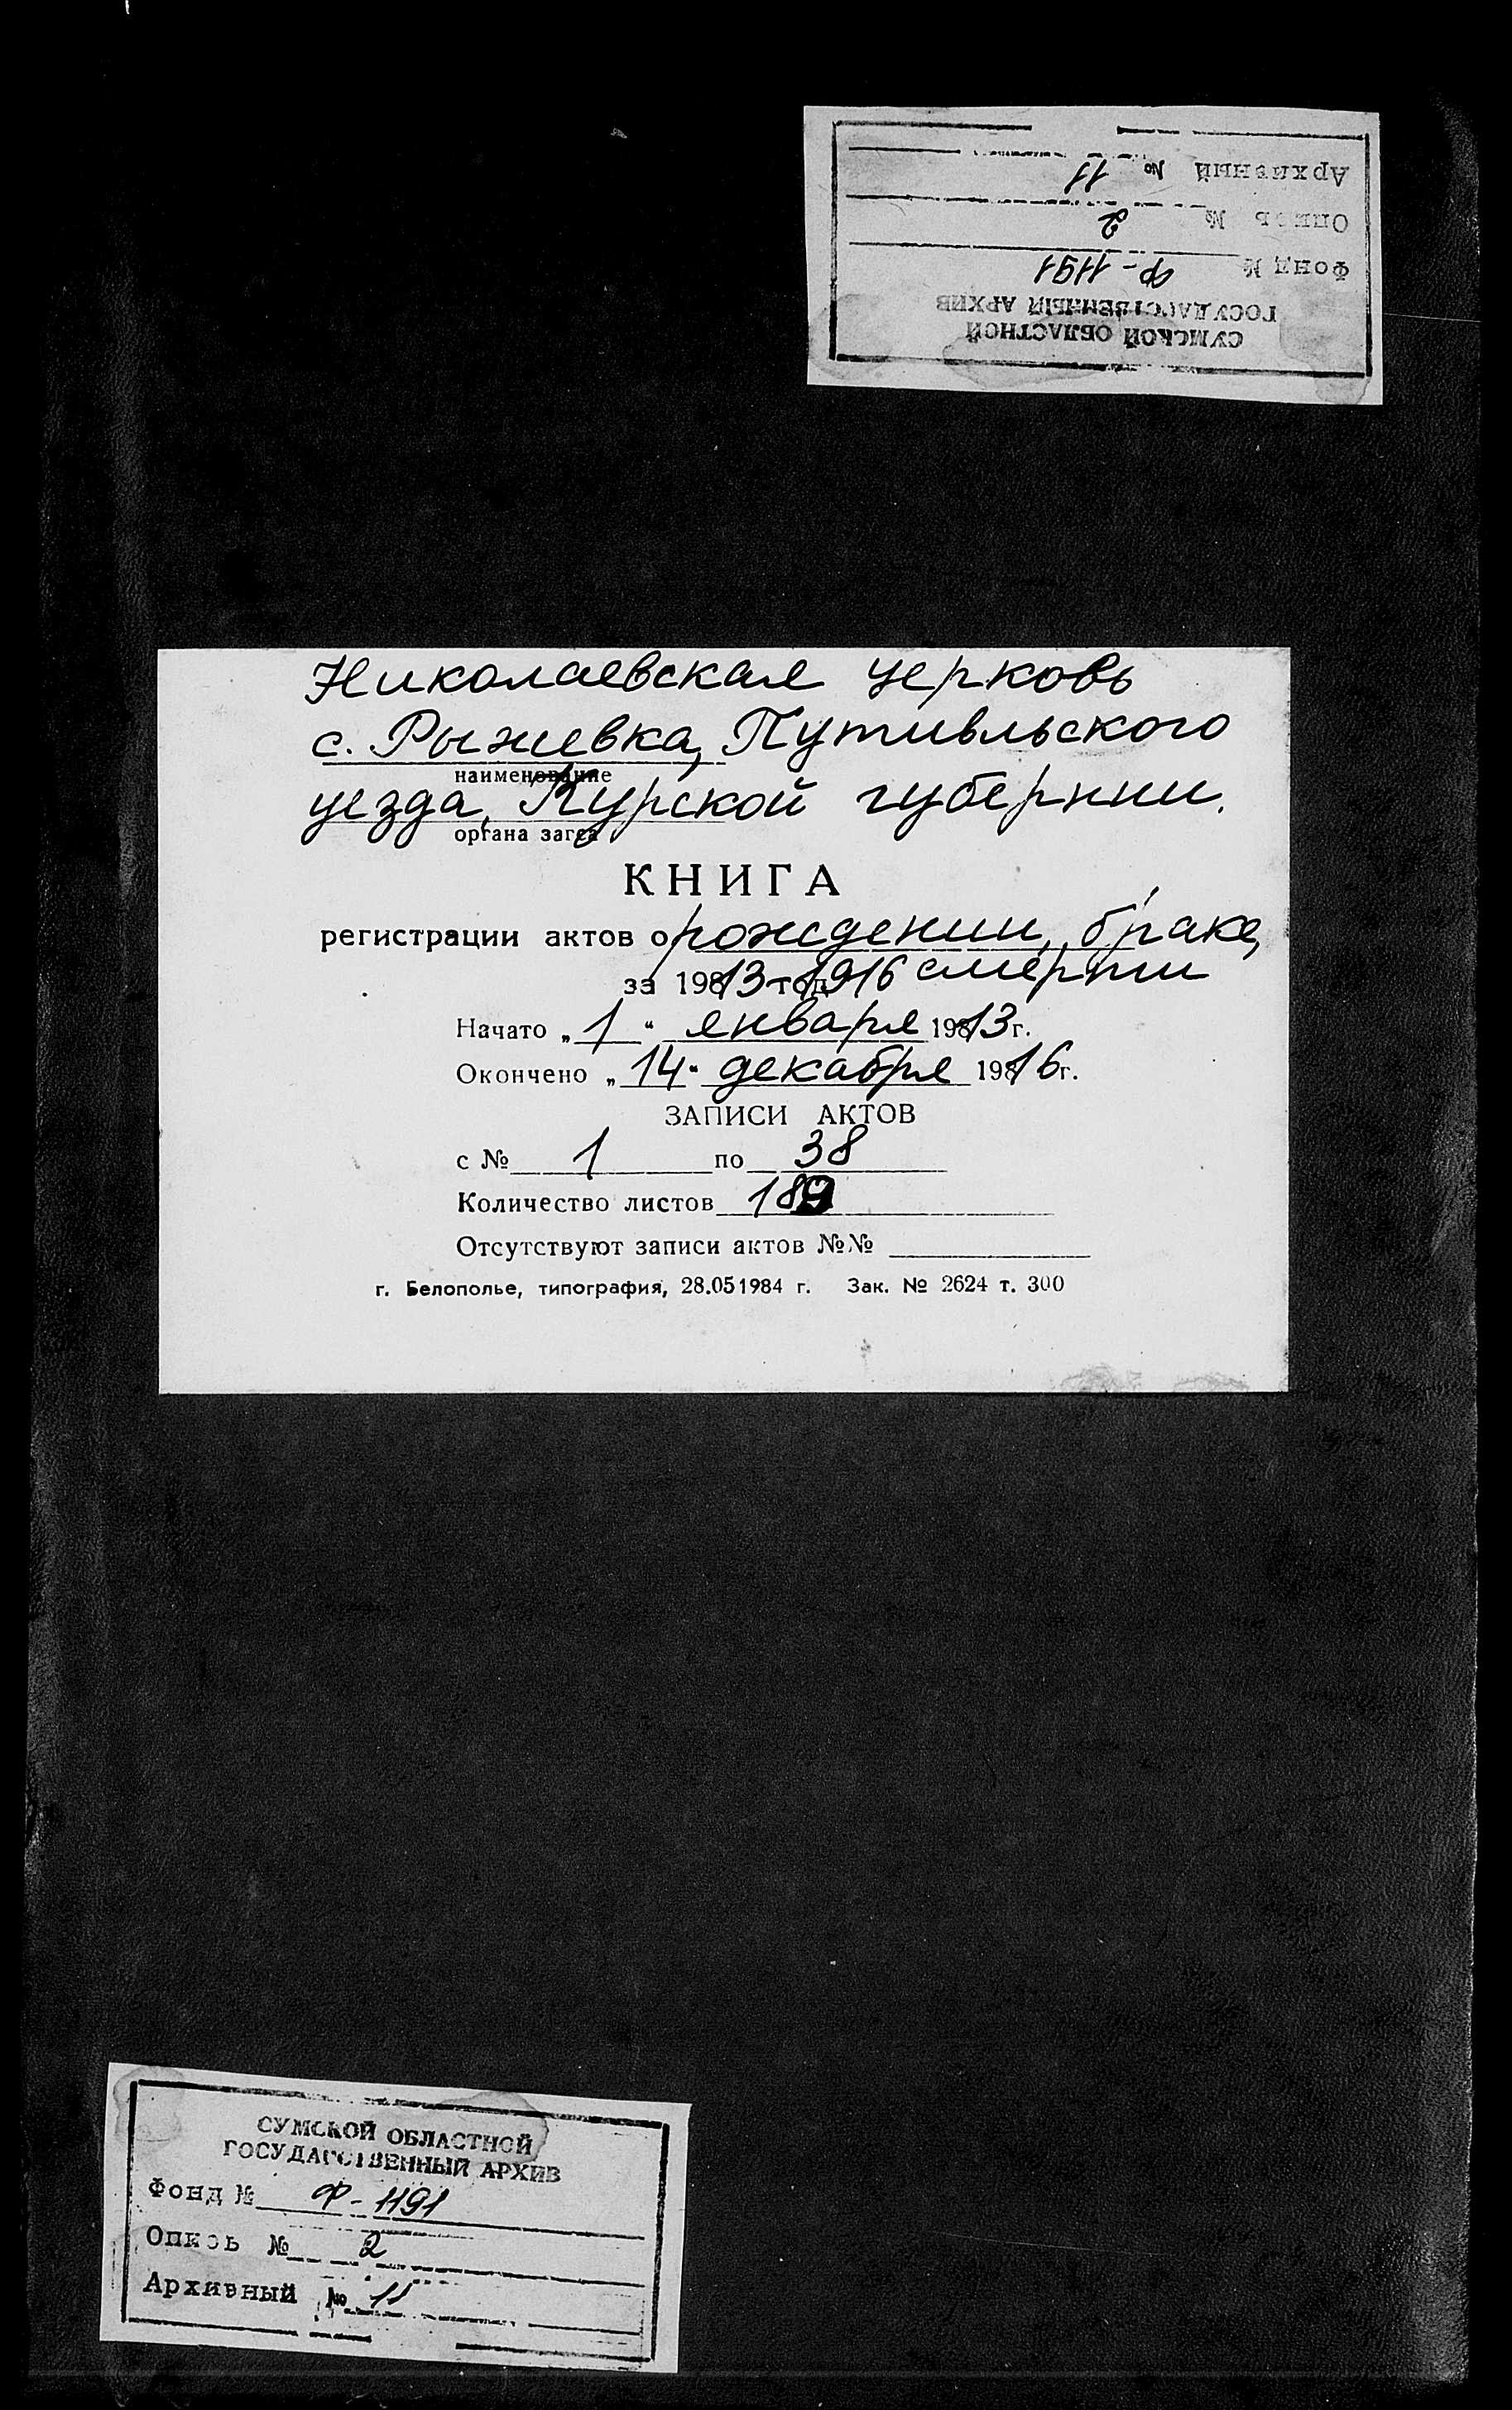 Архивный № 11
Опись № 2
Фонд № Ф-1191
ГОСУДАРСТВЕННЫЙ АРХИВ
СУМСКОЙ ОБЛАСТНОЙ
Николаевская церковь
с. Рыжевка, Путивльского
наименование
уезда, Курской губернии.
органа загса
КНИГА
регистрации актов о рождении, браке,
за 1913-1916 смерти
Начато „1“ января 1913г.
Окончено „14“ декабря 1916г.
ЗАПИСИ АКТОВ
с № 1 по 38
Количество листов 189
Отсутствуют записи актов №№
г. Белополье, типография, 28.051984 г. Зак. № 2624 т. 300
СУМСКОЙ ОБЛАСТНОЙ
ГОСУДАРСТВЕННЫЙ АРХИВ
Фонд № Ф-1191
Опись № 2
Архивный № 11